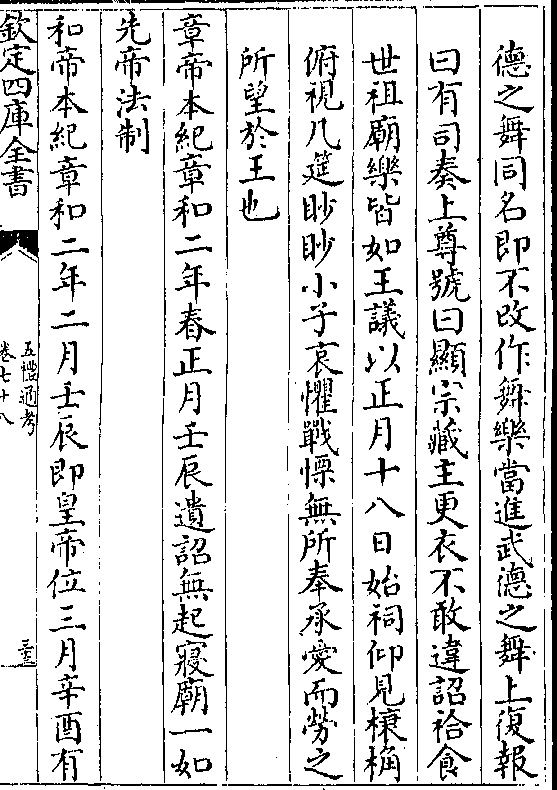 德之舞同名即不改作舞樂當進武德之舞上復報
曰有司奏上尊號曰顯宗藏主更衣不敢違詔祫食
世祖廟樂皆如王議以正月十八日始祠仰見榱桷
俯視几筵眇眇小子哀懼戰慄無所奉承愛而勞之
所望於王也
章帝本紀章和二年春正月壬辰遺詔無起寢廟一如
先帝法制
和帝本紀章和二年二月壬辰即皇帝位三月辛酉有
欽定四庫全書
五禮通考
卷七十八